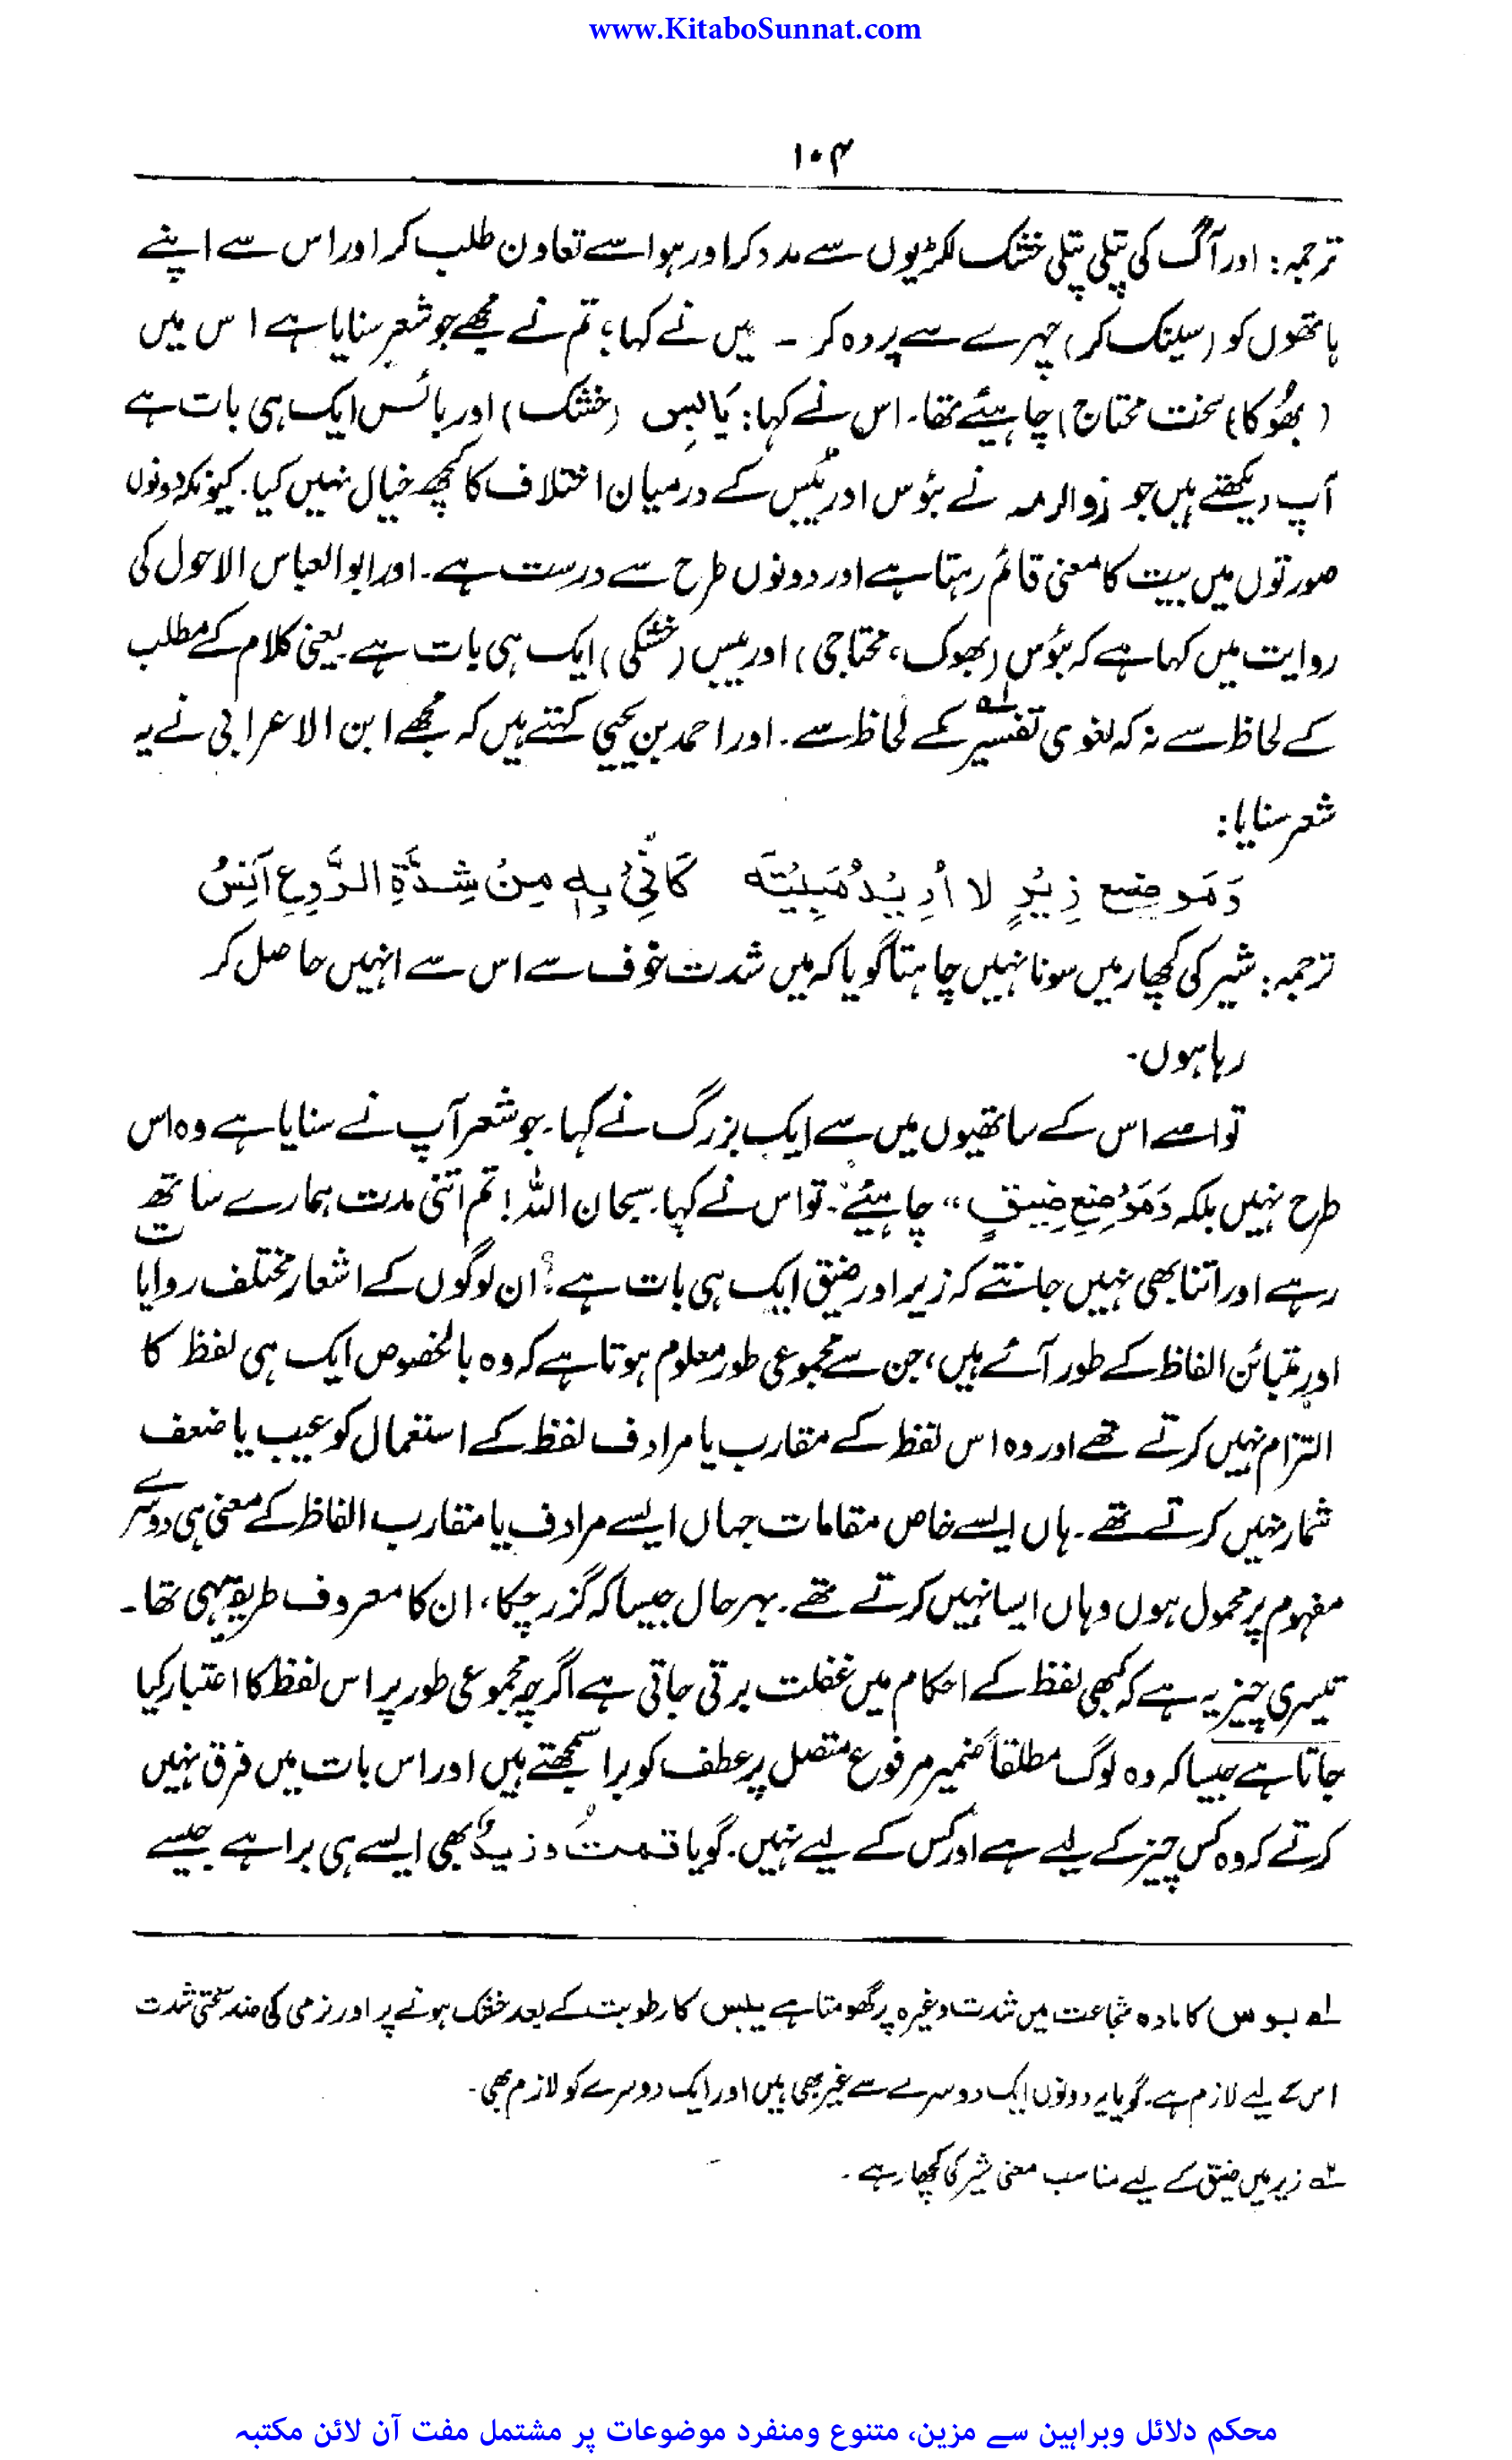 www.KitaboSunnat.com
۱۰۴
ترجمہ: اور آگ کی پتلی پتلی خشک لکڑیوں سے مدد کر اور ہوا سے تعاون طلب کر اور اس سے اپنے
ہاتھوں کو (سینک کر) چہرے سے پردہ کر ـ میں نے کہا؛ تم نے مجھے جو شعر سنایا ہے اس میں
(بھُوکا) سخت محتاج) چاہیئے تھا۔ اس نے کہا: یَابِس (خشک) اور بائس ایک ہی بات ہے
آپ دیکھتے ہیں جو ذوالرمہ نے بؤس اور یُبس کے درمیان اختلاف کا کچھ خیال نہیں کیا۔ کیونکہ دونوں
صورتوں میں بیت کا معنی قائم رہتا ہے اور دونوں طرح سے درست ہے۔ اور ابوالعباس الاحول کی
روایت میں کہا ہے کہ بؤس (بھوک، محتاجی) اور یبس (خشکی) ایک ہی بات ہے یعنی کلام کے مطلب
کے لحاظ سے نہ کہ لغوی تفسیر کے لحاظ سے۔ اور احمد بن یحییٰ کہتے ہیں کہ مجھے ابن الاعرابی نے یہ
شعر سنایا:
وَمَوضِع زِیْرٍ لا أُرِیْدُ مَبِیْتَه كَأَنِّیْ بِهٖ مِنْ شِدَّةِ الرَّوعِ آنِسُ
ترجمہ: شیر کی کچھار میں سونا نہیں چاہتا گویا کہ میں شدت خوف سے اس سے انہیں حاصل کر
رہا ہوں۔
تو اسے اس کے ساتھیوں میں سے ایک بزرگ نے کہا۔ جو شعر آپ نے سنایا ہے وہ اس
طرح نہیں بلکہ وَمَوْضِعِ ضِیقٍ“ چاہیئے۔ تو اس نے کہا۔ سبحان اللہ! تم اتنی مدت ہمارے ساتھ
رہے اور اتنا بھی نہیں جانتے کہ زیر اور ضیق ایک ہی بات ہے؟ ان لوگوں کے اشعار مختلف روایات
اور متبائن الفاظ کے طور آئے ہیں، جن سے مجموعی طور معلوم ہوتا ہے کہ وہ بالخصوص ایک ہی لفظ کا
التزام نہیں کرتے تھے اور وہ اس لفظ کے مقارب یا مرادف لفظ کے استعمال کو عیب یا ضعف
شمار نہیں کرتے تھے۔ ہاں ایسے خاص مقامات جہاں ایسے مرادف یا متقارب الفاظ کے معنی ہی دوسرے
مفہوم پر محمول ہوں وہاں ایسا نہیں کرتے تھے۔ بہر حال جیسا کہ گزر چکا، ان کا معروف طریقہ یہی تھا۔
تیسری چیز یہ ہے کہ کبھی لفظ کے احکام میں غفلت برتی جاتی ہے اگرچہ مجموعی طور پر اس لفظ کا اعتبار کیا
جاتا ہے جیسا کہ وہ لوگ مطلقاً ضمیر مرفوع متصل پر عطف کو برا سمجھتے ہیں اور اس بات میں فرق نہیں
کرتے کہ وہ کس چیز کے لیے ہے اور کس کے لیے نہیں۔ گویا قمتُ وزیدٌ بھی ایسے ہی برا ہے جیسے
لے بوس کا مادہ مجاعت میں شدت وغیرہ پر گھومتا ہے یبس کا رطوبت کے بعد خشک ہونے پر اور نرمی کی ضد سختی شدت
اس کے لیے لازم ہے۔ گویا یہ دونوں ایک دوسرے سے غیر بھی ہیں اور ایک دوسرے کو لازم بھی۔
۲ے زیر میں ضیق کے لیے مناسب معنی شیر کی کچھار ہے۔
محکم دلائل وبراہین سے مزین، متنوع ومنفرد موضوعات پر مشتمل مفت آن لائن مکتبہ